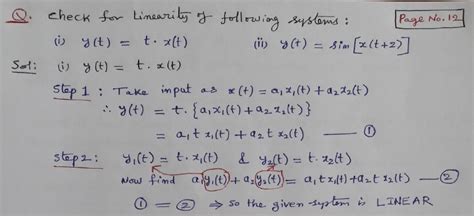 Q. Check for Linearity of following systems :
Page No. 12
(i) y(t) = t . x(t) (ii) y(t) = sin [x(t+2)]
Sol: (i) y(t) = t . x(t)
Step 1 : Take input as x(t) = a₁x₁(t) + a₂x₂(t)
∴ y(t) = t . {a₁x₁(t) + a₂x₂(t)}
= a₁ t x₁(t) + a₂ t x₂(t) — ①
Step 2 : y₁(t) = t . x₁(t) & y₂(t) = t . x₂(t)
Now find a₁y₁(t) + a₂y₂(t) = a₁ t x₁(t) + a₂ t x₂(t) — ②
① = ② ⇒ So the given system is LINEAR